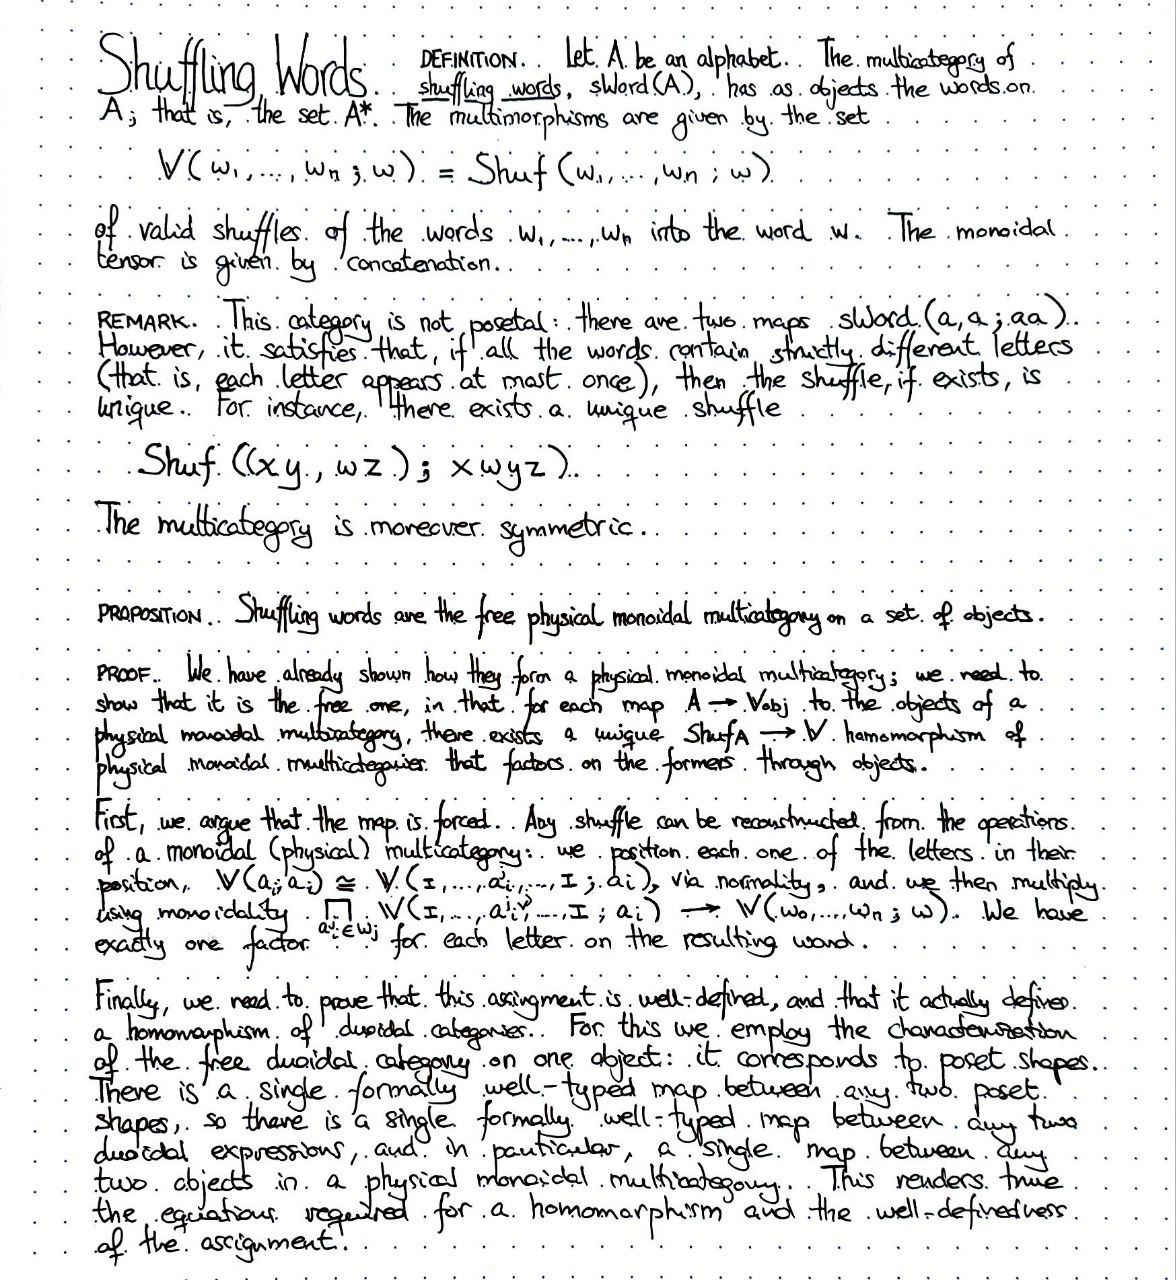 Shuffling Words. DEFINITION. Let A be an alphabet. The multicategory of
shuffling words, sWord(A), has as objects the words on
A; that is, the set A*. The multimorphisms are given by the set
V(w₁,...,wn; w) = Shuf(w₁,...,wn; w)
of valid shuffles of the words w₁,...,wn into the word w. The monoidal
tensor is given by concatenation.
REMARK. This category is not posetal: there are two maps sWord(a,a;aa).
However, it satisfies that, if all the words contain strictly different letters
(that is, each letter appears at most once), then the shuffle, if exists, is
unique. For instance, there exists a unique shuffle
Shuf((xy, wz); xwyz).
The multicategory is moreover symmetric.
PROPOSITION. Shuffling words are the free physical monoidal multicategory on a set of objects.
PROOF. We have already shown how they form a physical monoidal multicategory; we need to
show that it is the free one, in that for each map A → Vobj to the objects of a
physical monoidal multicategory, there exists a unique ShufA → V homomorphism of
physical monoidal multicategories that factors on the formers through objects.
First, we argue that the map is forced. Any shuffle can be reconstructed from the operations
of a monoidal (physical) multicategory: we position each one of the letters in their
position, V(ai;ai) ≅ V(I,...,ai,...,I; ai), via normality, and we then multiply
using monoidality ∏ V(I,...,aⱼᵢ,...,I; ai) → V(w₀,...,wn; w). We have
exactly one factor aʲᵢ∈wj for each letter on the resulting word.
Finally, we need to prove that this assingment is well-defined, and that it actually defines
a homomorphism of duoidal categories. For this we employ the characterization
of the free duoidal category on one object: it corresponds to poset shapes.
There is a single formally well-typed map between any two poset
shapes, so there is a single formally well-typed map between any two
duoidal expressions, and in particular, a single map between any
two objects in a physical monoidal multicategory. This renders true
the equations required for a homomorphism and the well-definedness
of the assignment.